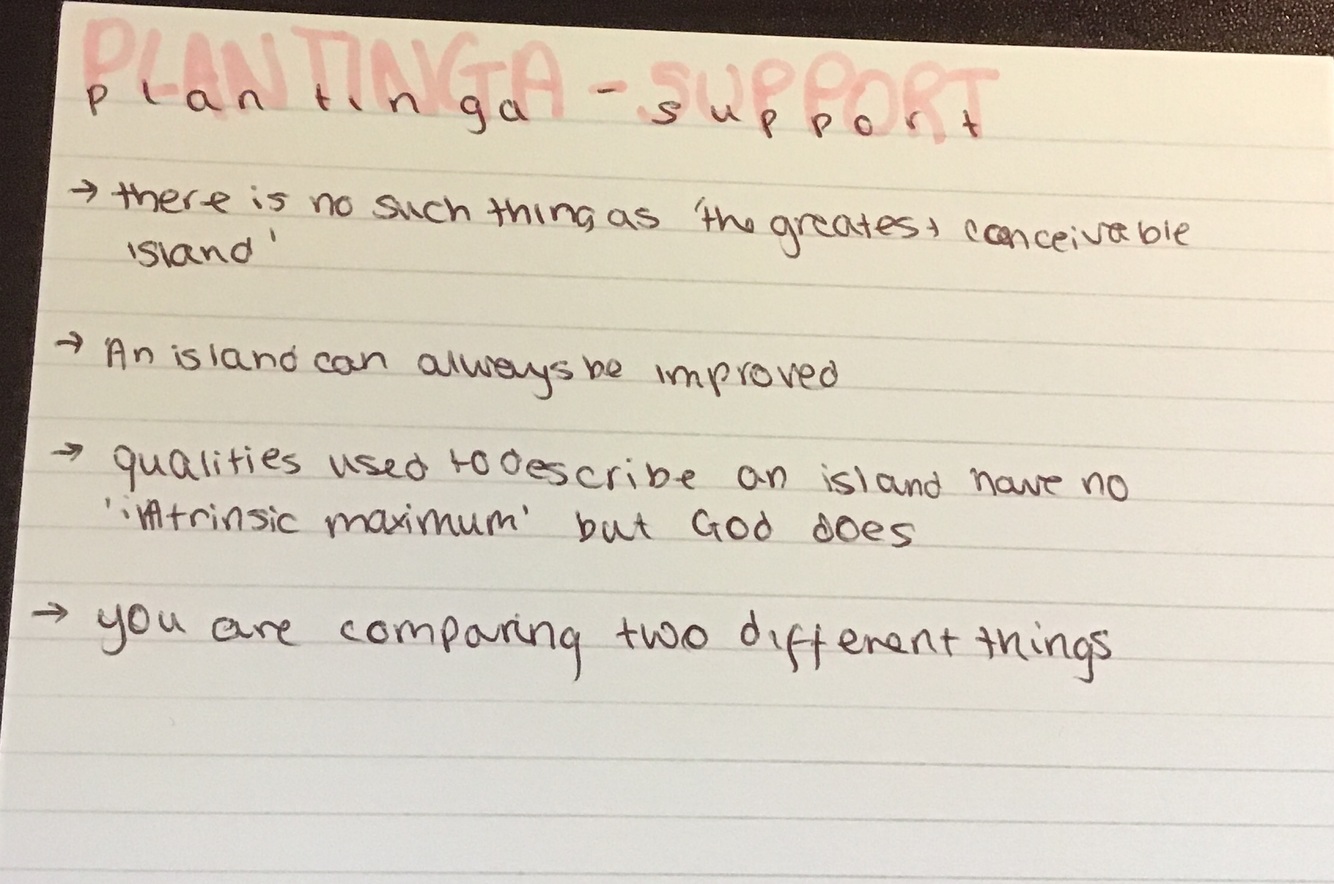 PLANTINGA - SUPPORT
plantinga - support
→ there is no such thing as 'the greatest conceivable
island'
→ An island can always be improved
→ qualities used to describe an island have no
'intrinsic maximum' but God does
→ you are comparing two different things